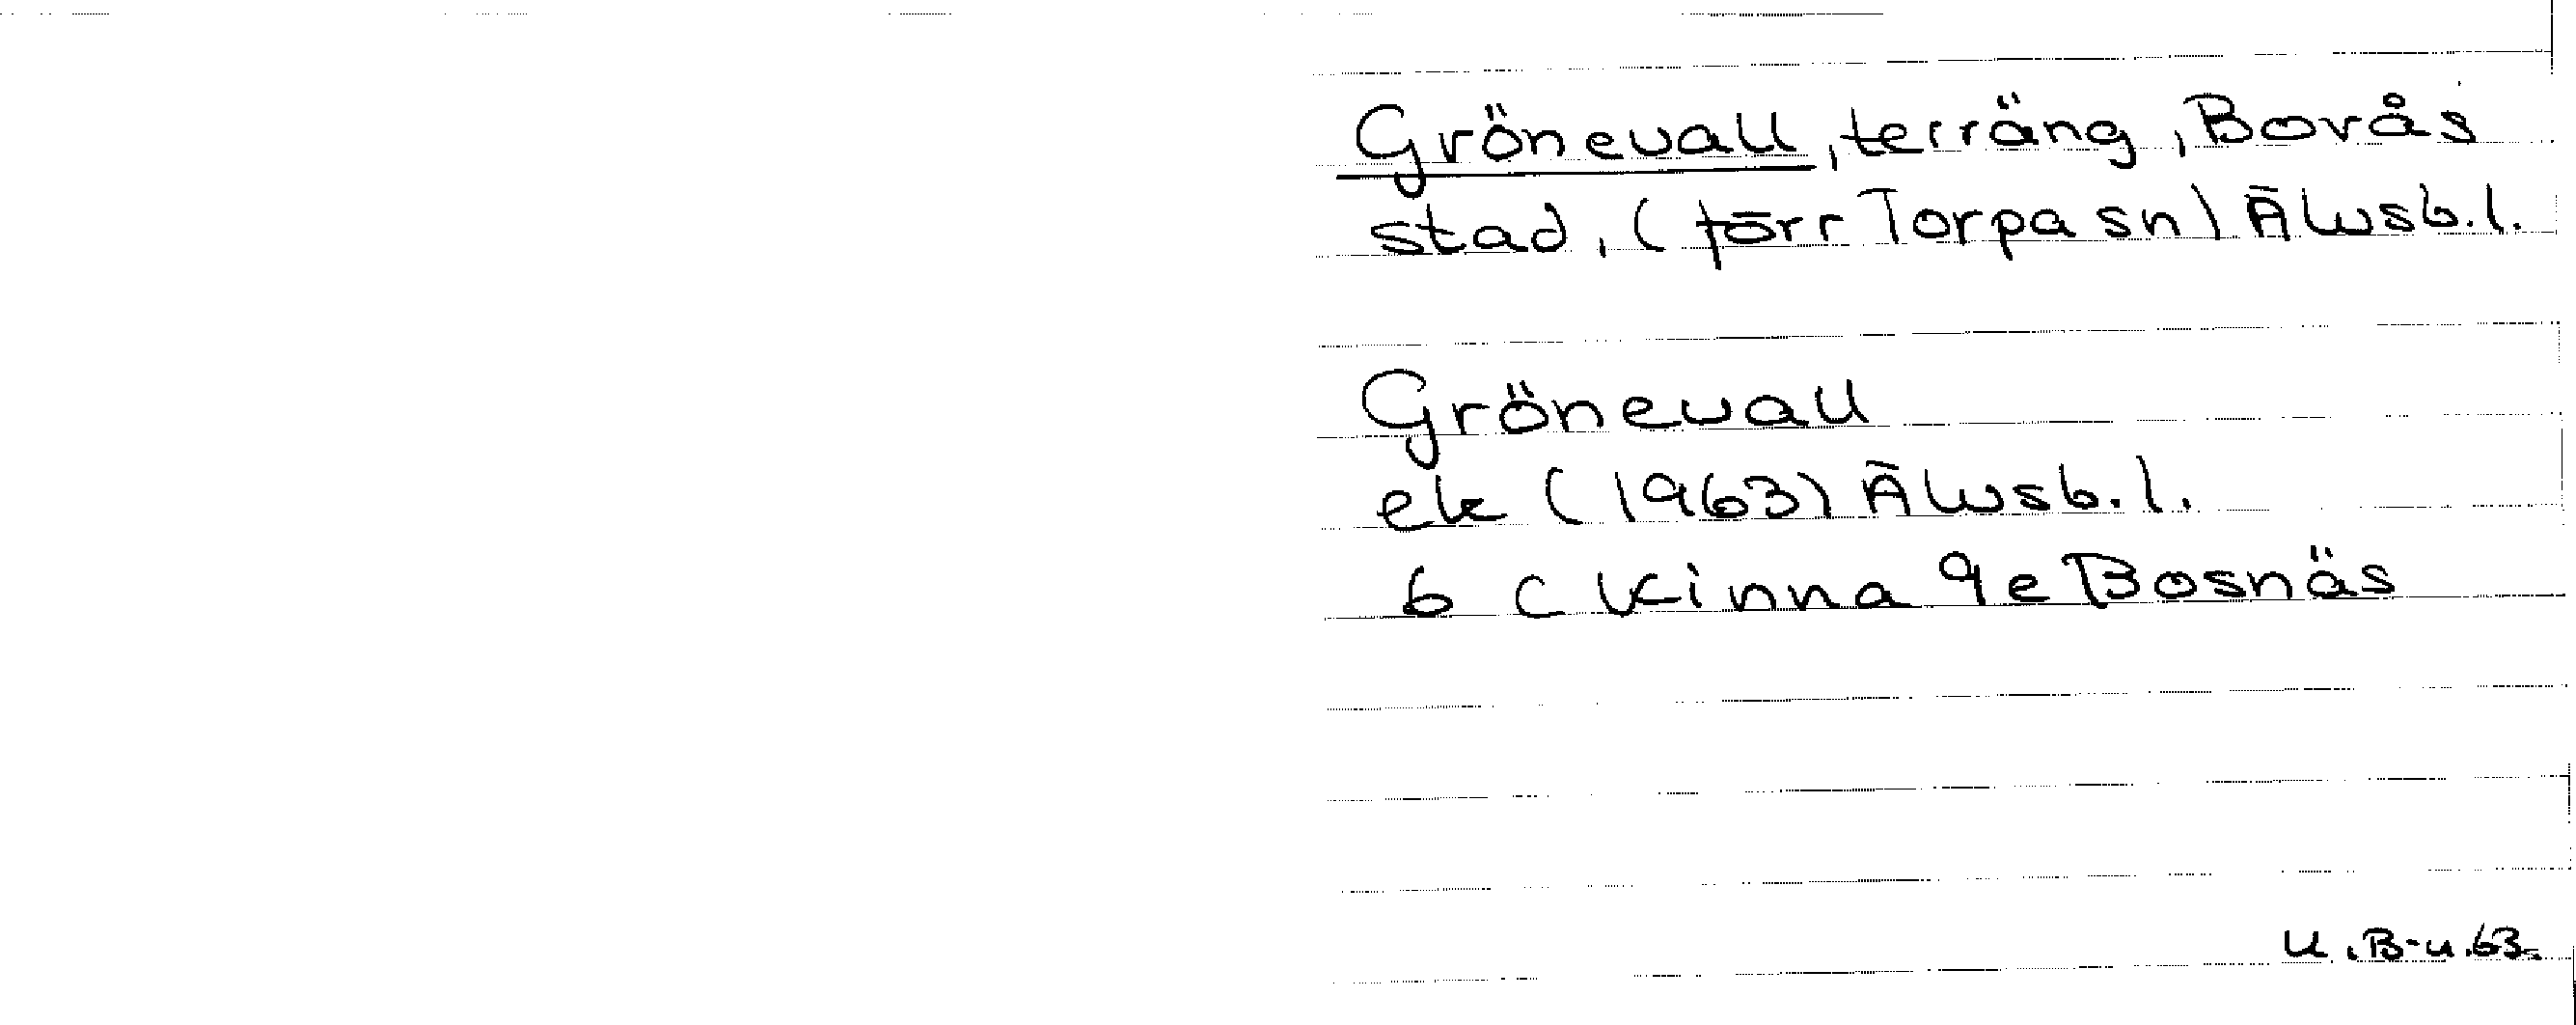 Grönevall, terräng, Borås
stad, (förr Torpa sn) Älvsb.l.
Grönevall
ek (1963) Älvsb.l.
6 C Kinna 9e Bosnäs
U.B-u.63.